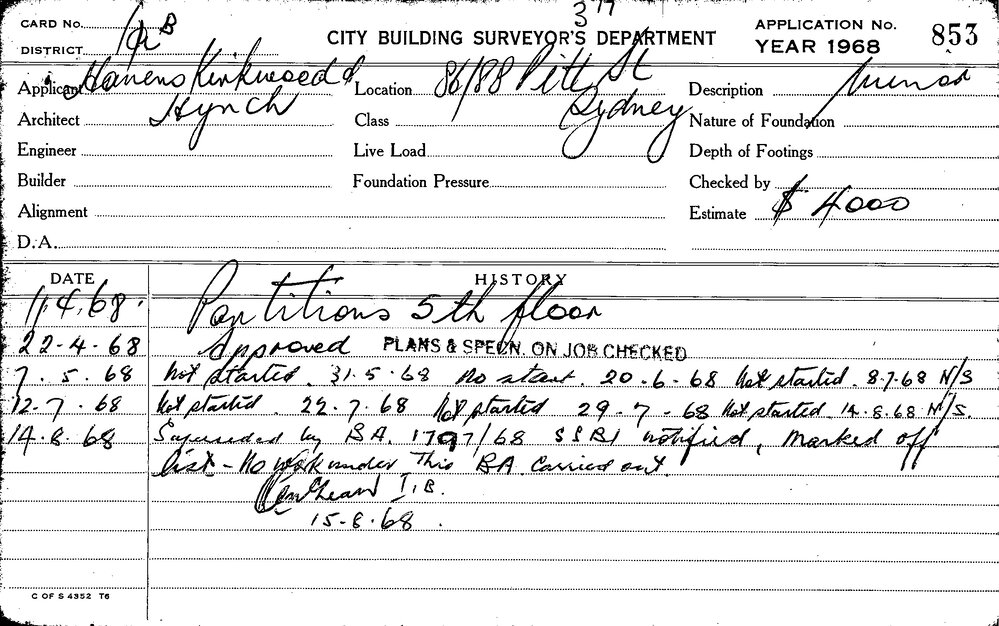 377
CARD No. B
CITY BUILDING SURVEYOR'S DEPARTMENT
APPLICATION No. 853
DISTRICT
YEAR 1968
Applicant Kirkwood &
Hynch
Location 86/88 Pitt St
Sydney
Description Minor
Architect
Class
Nature of Foundation
Engineer
Live Load
Depth of Footings
Builder
Foundation Pressure
Checked by
Alignment
Estimate $ 4000
D.A.
DATE HISTORY
11.4.68. Partitions 5th floor
22-4-68 Approved PLANS & SPECN. ON JOB CHECKED
7.5.68 Not started. 31.5.68 No start. 20-6-68 Not started. 8.7.68 N/S
12-7.68 Not started. 22.7.68 Not started 29-7-68 Not started. 14.8.68 N/S.
14.8.68 Superseded by BA. 1797/68 SSBI notified, marked off
list - No work under This BA carried out
I.B.
15-8.68.
C OF S 4352 T6